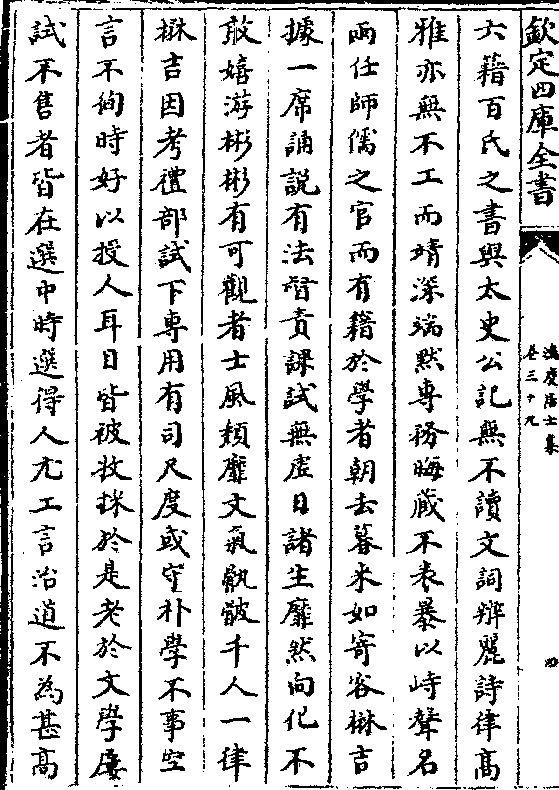 欽定四庫全書
鴻慶居士集
卷三十九
四
六籍百氏之書與太史公記無不讀文詞辨麗詩律高
雅亦無不工而靖深端默專務晦藏不表暴以峙聲名
兩任師儒之官而有籍於學者朝去暮来如寄客楙吉
據一席誦說有法督責課試無虛日諸生靡然向化不
敢嬉游彬彬有可觀者士風頬靡文氣骫骳千人一律
楙吉因考禮部試下専用有司尺度或守朴學不事空
言不徇時好以授人耳目皆被救抹於是老於文學屢
試不售者皆在選中時選得人尤工言治道不為甚高